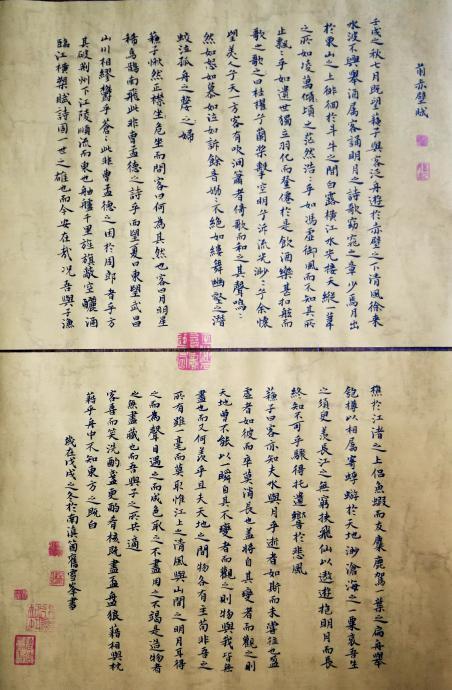 前赤壁賦
壬戌之秋七月既望蘇子與客泛舟遊於赤壁之下清風徐來
水波不興舉酒屬客誦明月之詩歌窈窕之章少焉月出
於東山之上徘徊於斗牛之間白露橫江水光接天縱一葦
之所如凌萬頃之茫然浩〻乎如馮虛御風而不知其所
止飄〻乎如遺世獨立羽化而登僊於是飲酒樂甚扣舷而
歌之歌曰桂櫂兮蘭槳擊空明兮泝流光渺〻兮余懷
望美人兮天一方客有吹洞簫者倚歌而和之其聲嗚〻
然如怨如慕如泣如訴餘音嫋〻不絕如縷舞幽壑之潛
蛟泣孤舟之嫠婦
蘇子愀然正襟危坐而問客曰何為其然也客曰月明星
稀烏鵲南飛此非曹孟德之詩乎西望夏口東望武昌
山川相繆鬱乎蒼〻此非曹孟德之困於周郎者乎方
其破荊州下江陵順流而東也舳艫千里旌旗蔽空釃酒
臨江橫槊賦詩固一世之雄也而今安在哉況吾與子漁
樵於江渚之上侶魚蝦而友麋鹿駕一葉之扁舟舉
匏樽以相屬寄蜉蝣於天地渺滄海之一粟哀吾生
之須臾羨長江之無窮挾飛仙以遨遊抱明月而長
終知不可乎驟得托遺響於悲風
蘇子曰客亦知夫水與月乎逝者如斯而未嘗往也盈
虛者如彼而卒莫消長也蓋將自其變者而觀之則
天地曾不能以一瞬自其不變者而觀之則物與我皆無
盡也而又何羨乎且夫天地之間物各有主苟非吾之
所有雖一毫而莫取惟江上之清風與山間之明月耳得
之而為聲目遇之而成色取之不盡用之不竭是造物者
之無盡藏也而吾與子之所共適
客喜而笑洗盞更酌肴核既盡杯盤狼藉相與枕
藉乎舟中不知東方之既白
歲在戊戌之冬於南滇 雪峯書